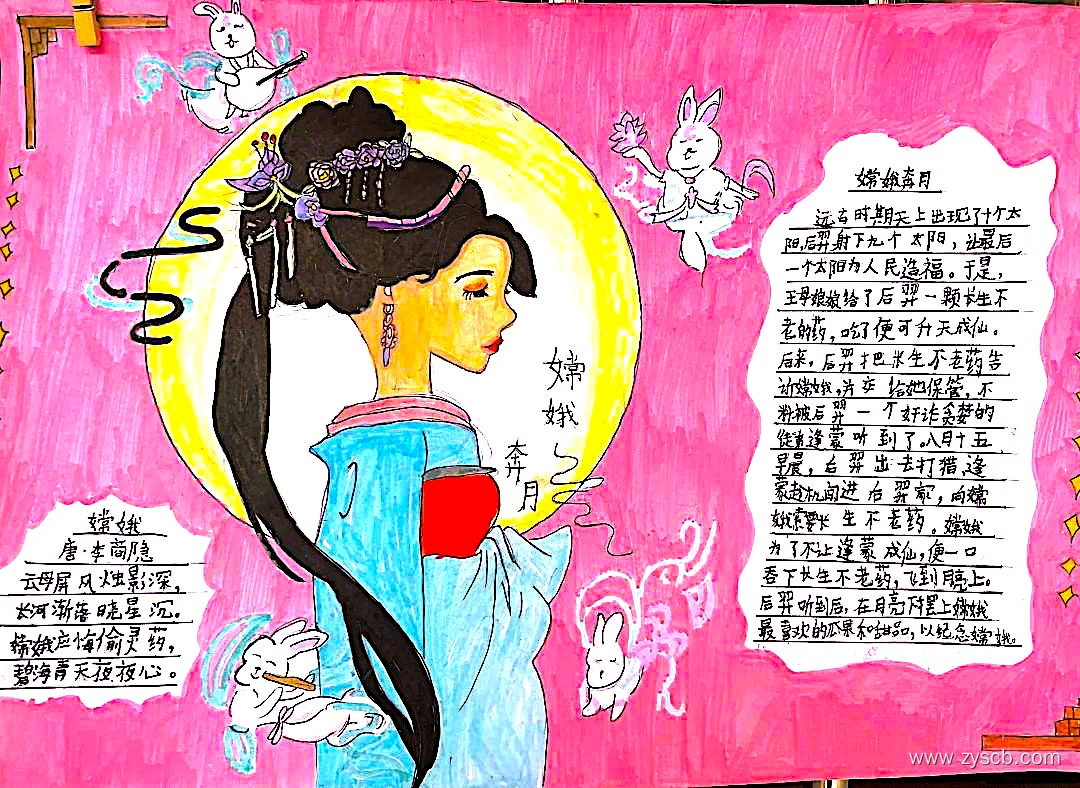 嫦娥奔月
嫦娥
唐·李商隐
云母屏风烛影深，
长河渐落晓星沉。
嫦娥应悔偷灵药，
碧海青天夜夜心。
嫦娥奔月
远古时期天上出现了十个太
阳,后羿射下九个太阳，让最后
一个太阳为人民造福。于是，
王母娘娘给了后羿一颗长生不
老的药，吃了便可升天成仙。
后来，后羿把长生不老药告
诉嫦娥,并交给她保管，不
料被后羿一个奸诈贪婪的
徒弟逢蒙听到了。八月十五
早晨，后羿出去打猎,逢
蒙趁机闯进后羿家，向嫦
娥索要长生不老药。嫦娥
为了不让逢蒙成仙，便一口
吞下长生不老药，飞到月亮上。
后羿听到后，在月亮下摆上嫦娥
最喜欢的瓜果和甜品，以纪念嫦娥。
www.zyscb.com